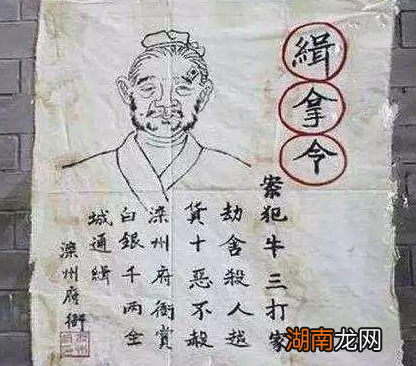 緝拿令
案犯牛三打家
劫舍殺人越
貨十惡不殺
滦州府衙賞
白銀千兩全
城通緝
滦州府衙
湖南龙网